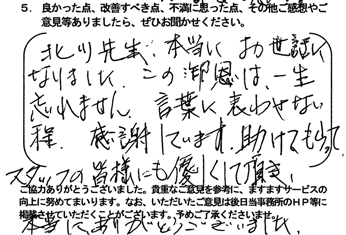 5. 良かった点、改善すべき点、不満に思った点、その他ご感想やご
意見等ありましたら、ぜひお聞かせください。
北川先生、本当に お世話に
なりました。この御恩は、一生
忘れません。言葉に表わせない
程、感謝しています。助けてもらって、
スタッフの皆様にも優しくして頂き、
ご協力ありがとうございました。貴重なご意見を参考に、ますますサービスの
向上に努めてまいります。なお、いただいたご意見は後日当事務所のHP等に
掲載させていただくことがございます。予めご了承くださいませ。
本当にありがとうございました。